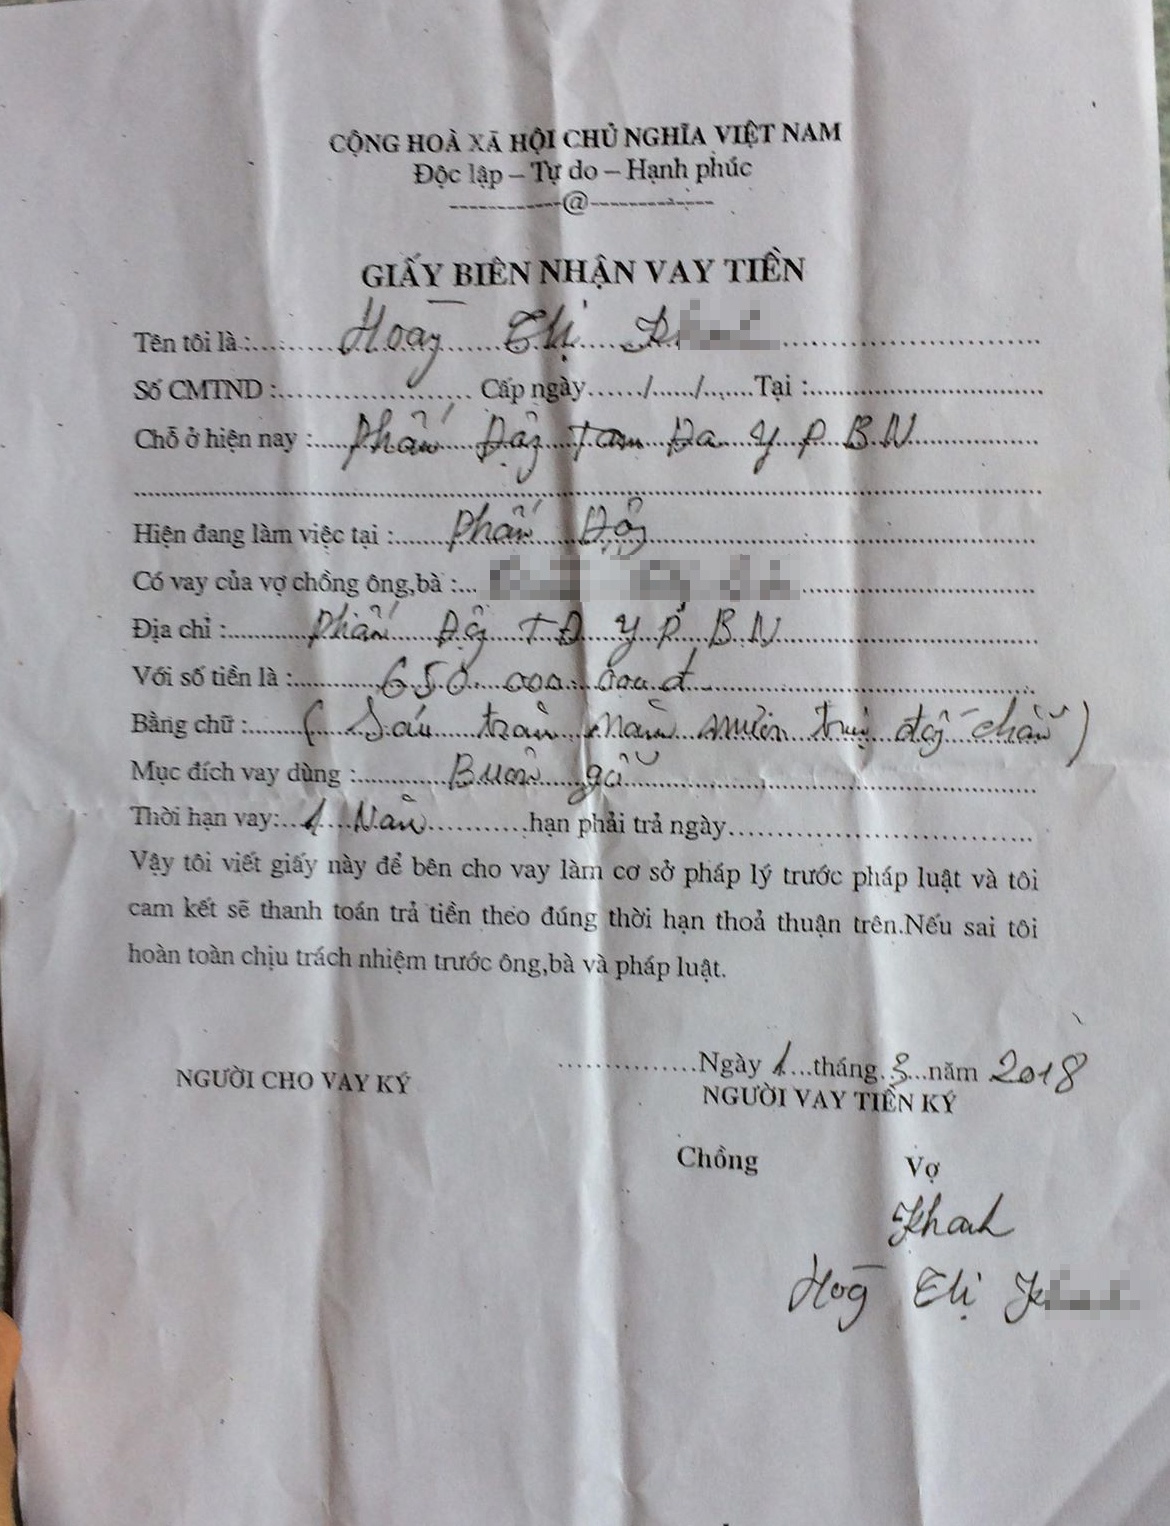 CỘNG HOÀ XÃ HỘI CHỦ NGHĨA VIỆT NAM
Độc lập – Tự do – Hạnh phúc
------------@------------
GIẤY BIÊN NHẬN VAY TIỀN
Tên tôi là :.... Thị
Số CMTND :.... Cấp ngày....../....../......Tại :....
Chỗ ở hiện nay :.... Tam Đa Y P B N
Hiện đang làm việc tại :....
Có vay của vợ chồng ông,bà :...
Địa chỉ :.... T Đ Y P B N
Với số tiền là :.... 650.000.000đ
Bằng chữ :.... ( Sáu trăm năm mươi triệu đồng chẵn )
Mục đích vay dùng :.... Buôn gỗ
Thời hạn vay:...1 Năm....hạn phải trả ngày....
Vậy tôi viết giấy này để bên cho vay làm cơ sở pháp lý trước pháp luật và tôi
cam kết sẽ thanh toán trả tiền theo đúng thời hạn thoả thuận trên.Nếu sai tôi
hoàn toàn chịu trách nhiệm trước ông,bà và pháp luật.
....Ngày 1...tháng.3...năm 2018
NGƯỜI CHO VAY KÝ NGƯỜI VAY TIỀN KÝ
Chồng Vợ
Khanh
Thị